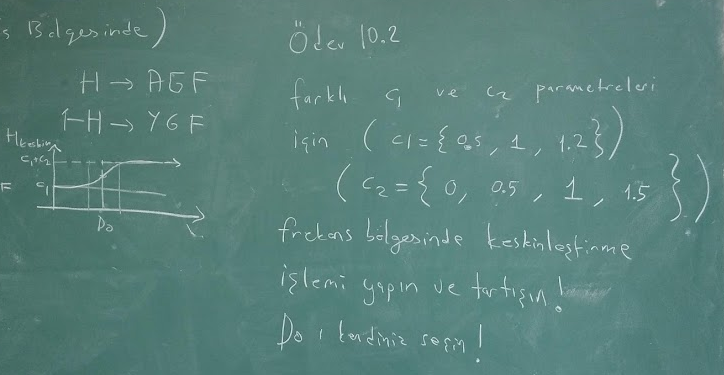 s Bölgesinde)
H → AGF
1-H → YGF
Hkeskin
c1+c2
c1
F
D0
Ödev 10.2
farklı c1 ve c2 parametreleri
için (c1={0.5, 1, 1.2})
(c2={0, 0.5, 1, 1.5})
frekans bölgesinde keskinleştirme
işlemi yapın ve tartışın!
Do ı kendiniz seçin!